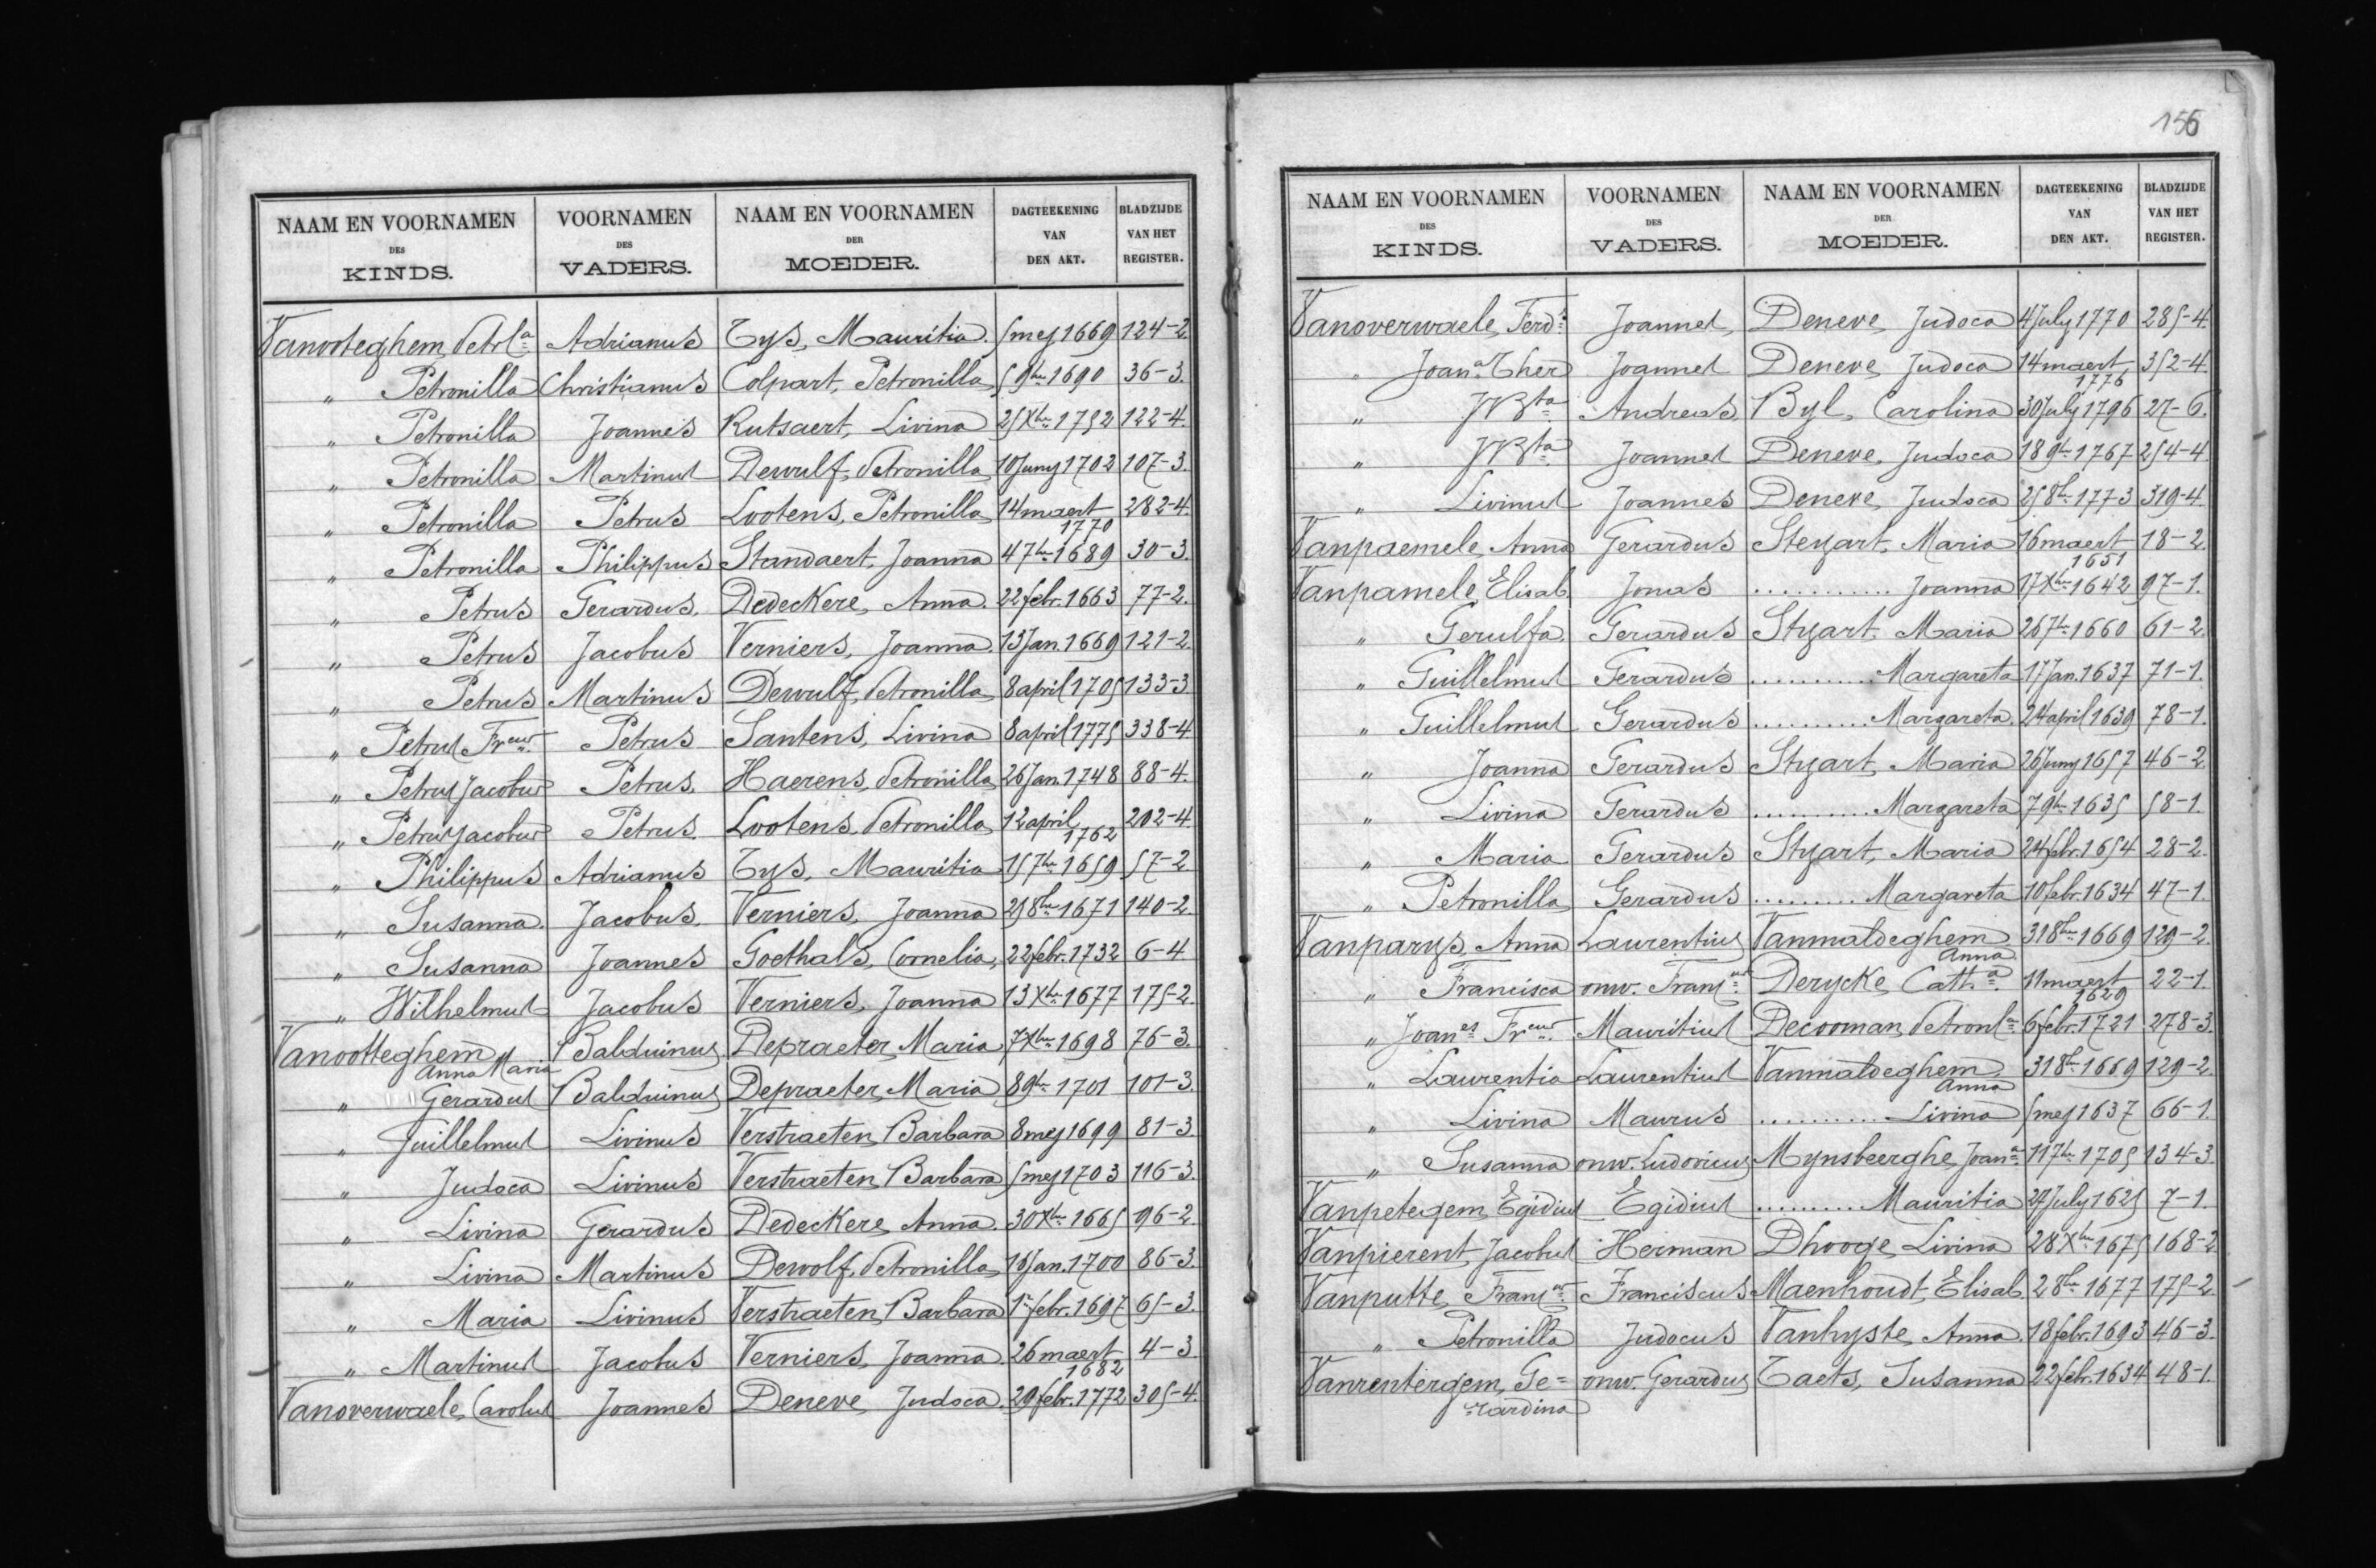 NAAM EN VOORNAMEN DES KINDS. VOORNAMEN DES VADERS. NAAM EN VOORNAMEN DER MOEDER. DAGTEEKENING VAN DEN AKT. BLADZIJDE VAN HET REGISTER.
Vanooteghem, Petrla Adrianus Tys, Mauritia. 5 mey 1669 124-2.
" Petronilla Christianus Colpart, Petronilla 5 9ber 1690 36-3.
" Petronilla Joannes Rutsaert, Livina 25 Xber 1752 122-4.
" Petronilla Martinus Dewulf, Petronilla 10 Juny 1702 107-3.
" Petronilla Petrus Lootens, Petronilla 14 maert 1770 282-4.
" Petronilla Philippus Standaert, Joanna 4 7ber 1689 30-3.
" Petrus Gerardus. Dedeckere, Anna. 22 febr. 1663 77-2.
" Petrus Jacobus Verniers, Joanna. 13 Jan. 1669 121-2.
" Petrus Martinus Dewulf, Petronilla 8 april 1705 133-3
" Petrus Frcus Petrus Santens, Livina 8 april 1775 338-4.
" Petrus Jacobus Petrus. Haerens, Petronilla 26 Jan. 1748 88-4.
" Petrus Jacobus Petrus. Lootens, Petronilla 12 april 1762 202-4.
" Philippus Adrianus Tys, Mauritia 15 7ber 1659 57-2
" Susanna. Jacobus. Verniers, Joanna 25 8ber 1671 140-2.
" Susanna Joannes Goethals, Cornelia, 22 febr. 1732 6-4
" Wilhelmus Jacobus Verniers, Joanna 13 Xber 1677 175-2.
Vanootteghem Anna Maria Balduinus Depraeter, Maria 7 Xber 1698 76-3.
" Gerardus Balduinus Depraeter, Maria 8 9ber 1701 101-3.
" Guillelmus Livinus Verstraeten, Barbara 8 mey 1699 81-3.
" Judoca Livinus Verstraeten, Barbara 5 mey 1703 116-3.
" Livina Gerardus Dedeckere, Anna. 30 Xber 1665 96-2.
" Livina Martinus Dewolf, Petronilla 16 Jan. 1700 86-3.
" Maria Livinus Verstraeten, Barbara 1e febr. 1697 65-3.
" Martinus Jacobus Verniers, Joanna. 26 maert 1682 4-3
Vanoverwaele, Carolus Joannes Deneve, Judoca. 29 febr. 1772 305-4.
156
NAAM EN VOORNAMEN DES KINDS. VOORNAMEN DES VADERS. NAAM EN VOORNAMEN DER MOEDER. DAGTEEKENING VAN DEN AKT. BLADZIJDE VAN HET REGISTER.
Vanoverwaele, Ferds Joannes, Deneve, Judoca 4 July 1770 285-4.
" Joana Ther Joannes Deneve, Judoca 14 maert, 1776 352-4.
" J Bta Andreas, Byl, Carolina 30 July 1796 27-6.
" J Bta Joannes Deneve, Judoca 18 9ber 1767 254-4.
" Livinus Joannes Deneve, Judoca 25 8ber 1773 319-4.
Vanpaemele, Anna Gerardus Steyart, Maria 16 maert 1651 18-2.
Vanpamele, Elisab. Jonas ............ Joanna 17 Xber 1642 97-1.
" Gerulfa Gerardus Styart, Maria 26 7ber 1660 61-2.
" Guillelmus Gerardus ........... Margareta 17 Jan. 1637 71-1.
" Guillelmus Gerardus ........... Margareta. 24 april 1639 78-1.
" Joanna Gerardus Styart, Maria 26 Juny 1657 46-2
" Livina Gerardus ........... Margareta 7 9ber 1635 58-1.
" Maria Gerardus Styart, Maria 24 febr. 1654 28-2.
" Petronilla Gerardus .......... Margareta 10 febr. 1634 47-1.
Vanparys, Anna Laurentius Vanmaldeghem Anna 31 8ber 1669 129-2.
" Francisca onw. Francus Derycke, Catha 11 maert 1629 22-1.
" Joanes Frcus Mauritius Decooman, Petronla 6 febr. 1721 278-3.
" Laurentia Laurentius Vanmaldeghem, Anna 31 8ber 1669 129-2.
" Livina Maurus ........... Livina 5 mey 1637 66-1.
" Susanna onw. Ludovicus Mynsbeerghe, Joana 11 7ber 1705 134-3
Vanpetegem, Egidius Egidius .......... Mauritia 27 July 1625 7-1.
Vanpierent, Jacobus Herman Dhooge, Livina 28 Xber 1675 168-2
Vanputte, Francus Franciscus Maenhoudt, Elisab. 2 8ber 1677 175-2.
" Petronilla Judocus Vanhyste, Anna. 18 febr. 1693 46-3.
Vanrentergem, Ge=rardina onw. Gerardus Taets, Susanna 22 febr. 1634 48-1.